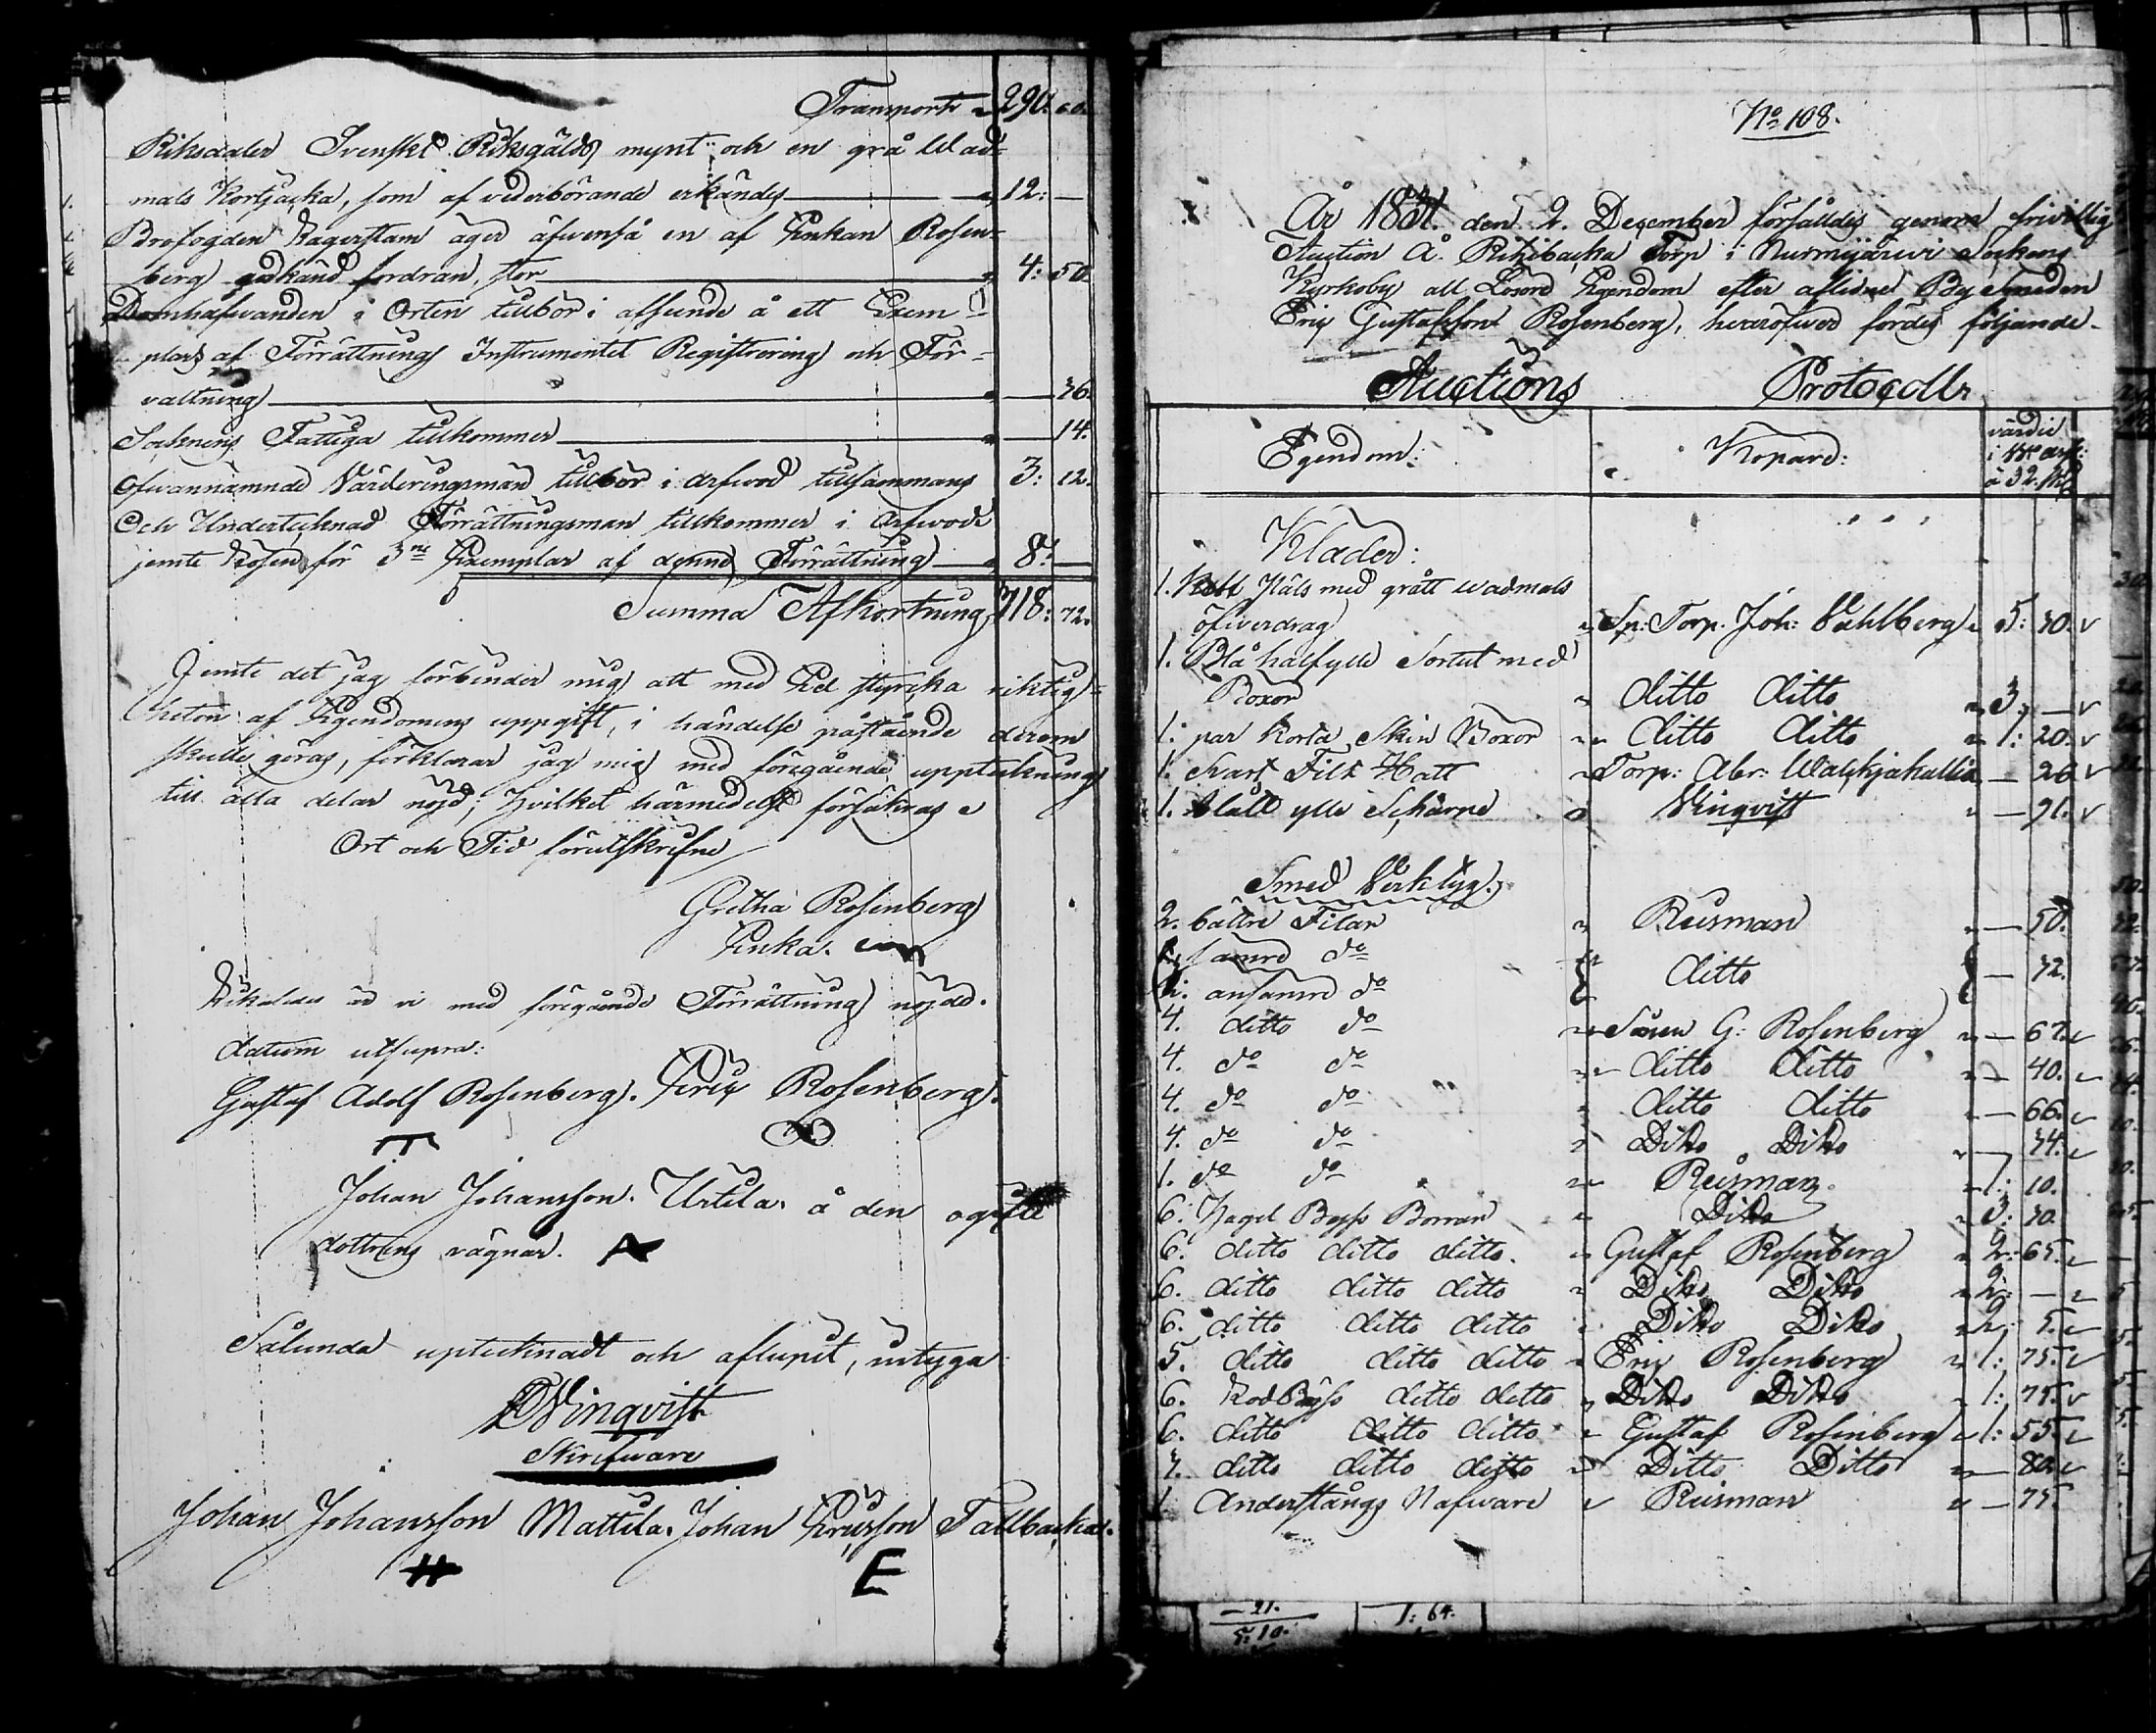 Transport 290. 60.
Riksdaler Svenskt Riksgälds mynt och en grå Wad-
mals Kortjacka, som af vederbörande erkändes 12: —
Brofogden Lagerstam äger äfvenså en af Enkan Rosen-
berg godkänd fordran, stor 4: 50.
Domhafvanden i Orten tillhör i afseende å ett Exem-
plar af Förrättnings Instrumentet Registrering och För-
valtning — 36.
Socknens Fattiga tillkommer — 14.
Ofvannämnde Värderingsmän tillhör i arfwod tillsammans 3: 12.
Och Undertecknad Förrättningsman tillkommer i Arfwode
jemte Lösen för 3ne Exemplar af denna Förrättning 8: —
Summa Afkortning 718: 72.
Jemte det jag förbinder mig att med Ed styrcka riktig-
heten af Egendomens uppgift, i händelse påstående derom
skulle göras, förklarar jag mig med föregående uppteckning
till alla delar nöjd; hvilket härmedelst försäkras
Ort och Tid förutskrifne
Gretha Rosenberg
Enka.
Likaledes äro vi med föregående Förrättning nöjde.
datum utsupra:
Gustaf Adolf Rosenberg. Eric Rosenberg.
Johan Johansson Urtila å den ogifte
dottrens vägnar.
Sålunda uptecknadt och aflupit, intyga
Winqvist
Skrifvare
Johan Johansson Mattila. Johan Ericsson Tallbacka.
H E
No 108.
År 1831. den 2. December försåldes genom frivillig
Auction å Rikibacka Torp i Nurmijärwi Sockens
Kyrkoby all Lösörd Egendom efter aflidne By Smeden
Eric Gustafsson Rosenberg, hvaröfwer fördes följande
Auctions Protocoll
Egendom: Köpare: värdie
i
à 32.
Kläder:
1. Päls med grått wadmals
öfwerdrag Sp: Torp. Joh: Vahlberg 5: 30.
1. Blå halfylle Sortut med
Boxor ditto ditto 3: —
1. par korta Skin Boxor ditto ditto 1: 20.
1. Svart Filt Hatt Torp: Abr: Walkjakallia — 26
1. blått ylle Schärpe Winqvist — 21.
Smed Verktyg:
2. bättre Filar Reisman — 50.
sämre do ditto — 32.
do
4. ditto do Sonen G: Rosenberg — 67.
4. do do ditto ditto — 40.
4. do do ditto ditto — 66.
4. do do Ditto Ditto — 34.
1. do do Reisman 1: 10.
6. Hagel Byss Borrar Ditto 3: 30.
6. ditto ditto ditto Gustaf Rosenberg 2: 65.
6. ditto ditto ditto Ditto Ditto 2: —
6. ditto ditto ditto Ditto Ditto 2: 5.
5. ditto ditto ditto Eric Rosenberg 1: 75.
6. Lod Byss ditto ditto Ditto Ditto 1: 75.
6. ditto ditto ditto Gustaf Rosenberg 1: 55.
7. ditto ditto ditto Ditto Ditto — 80.
1. Anderstångs Nafware Reisman — 75.
— 21.
5: 10.
1: 64.